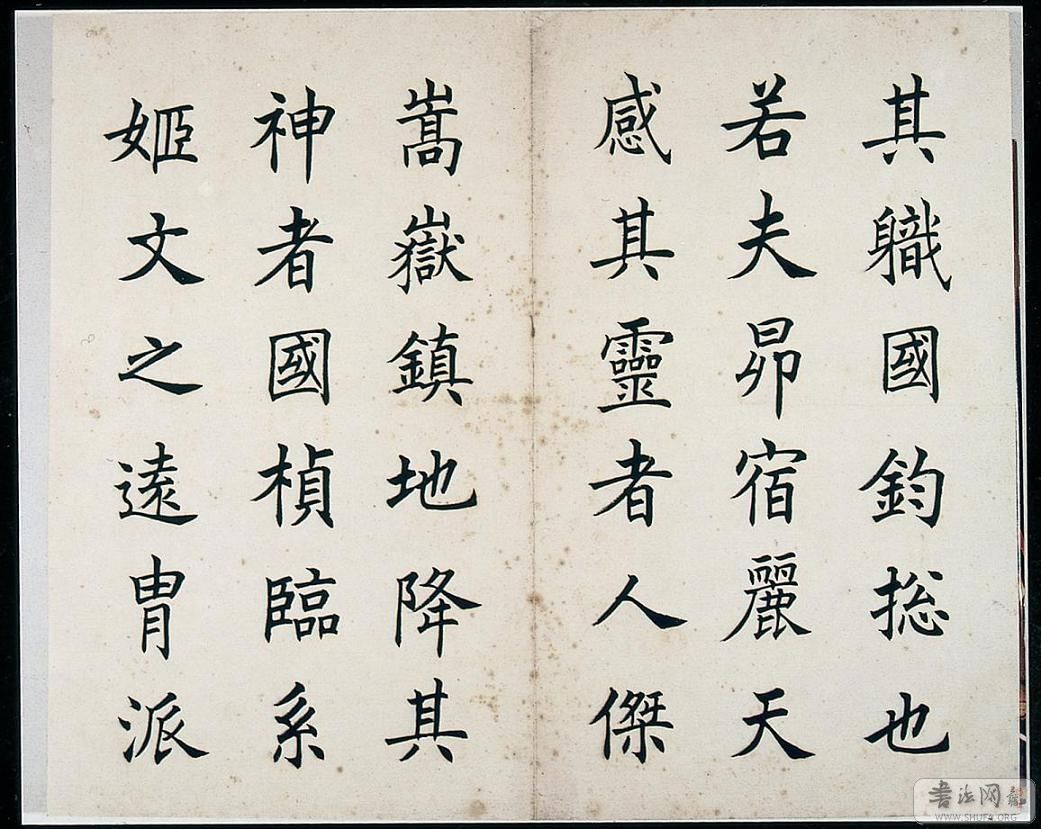 其軄國鈞捴也
若夫昴宿麗天
感其靈者人傑
嵩嶽鎮地降其
神者國楨臨系
姬文之遠胄派
書法网
WWW.SHUFA.ORG